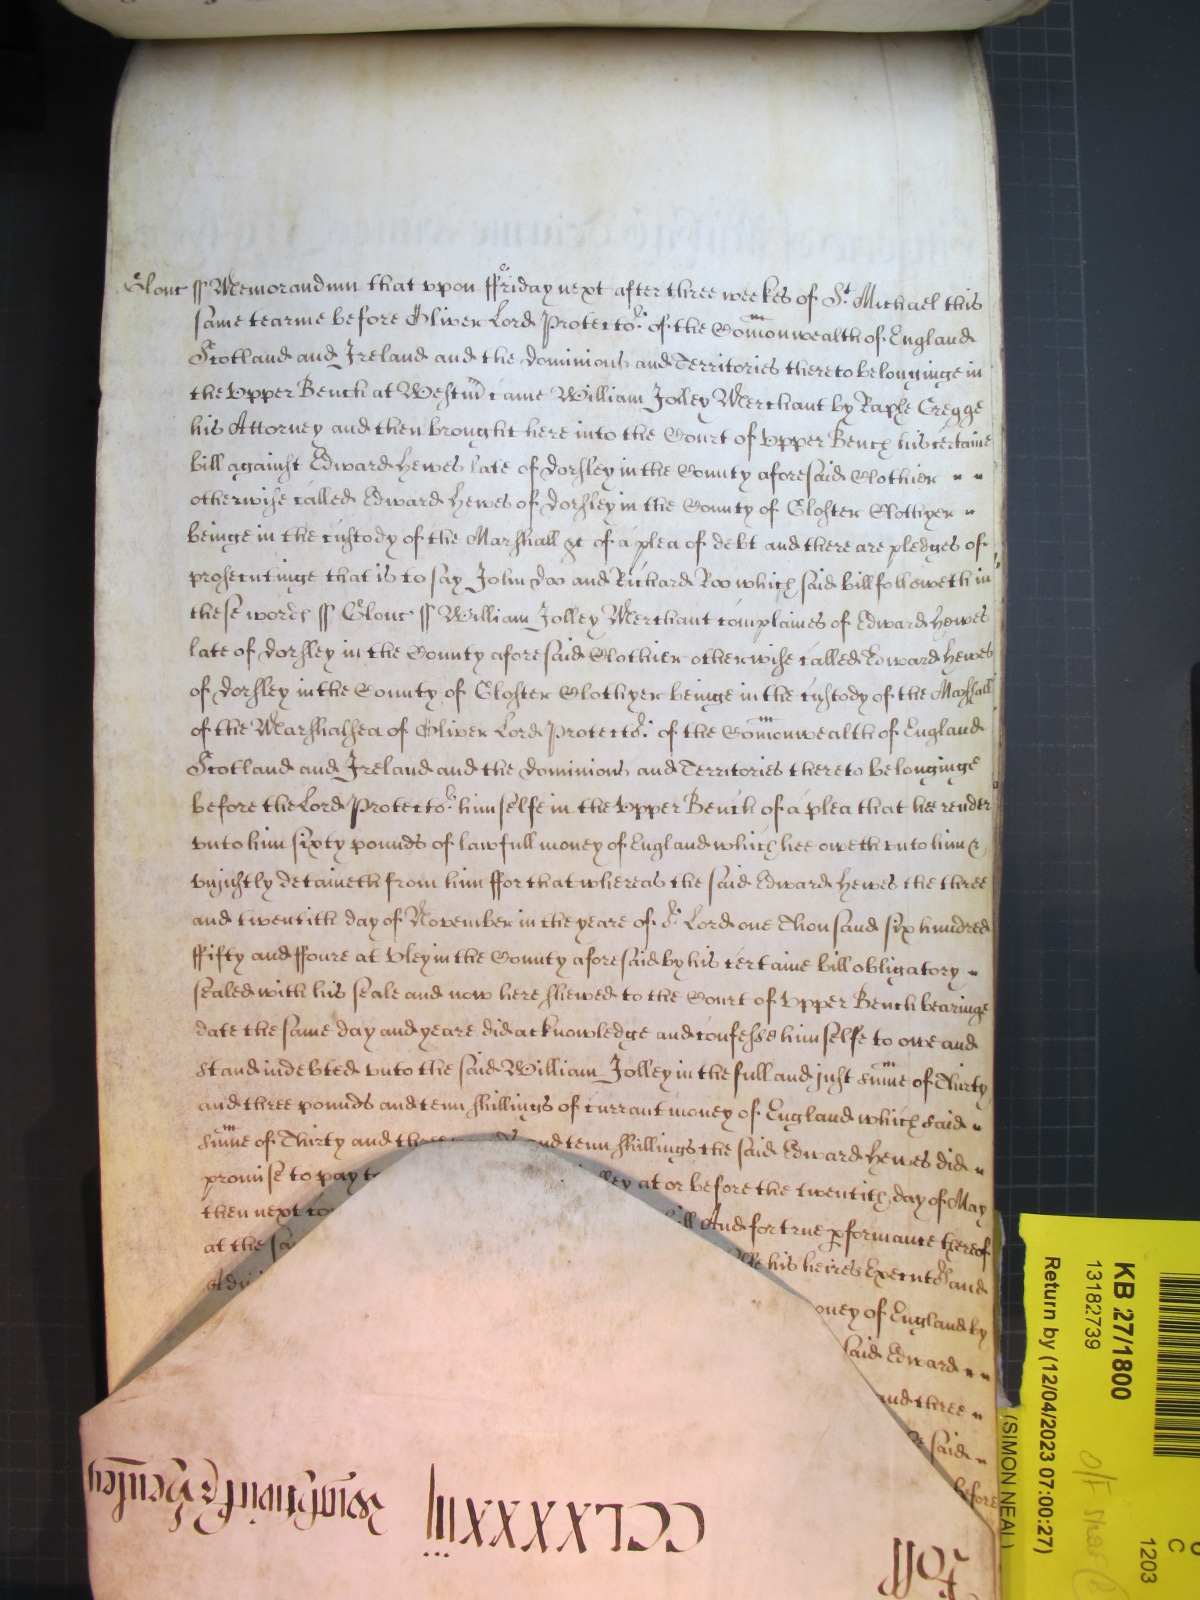 Glouc ss Memorandum that vpon ffriday next after three weekes of St Michael this
same tearme before Oliver Lord Protector of the Comonwealth of England
Scotland and Ireland and the dominions and Territories thereto belonginge in
the Vpper Bench at Westm came William Jolley Merchant by Raphe Gregge
his Attorney and then brought here into the Court of Vpper Bench his certaine
bill against Edward Hewes late of Dorsley in the County aforesaid Clothier
otherwise called Edward Hewes of Dorsley in the County of Gloster Clothyer
beinge in the custody of the Marshall &c of a plea of debt and there are pledges of
prosecutinge that is to say John Doo and Richard Roo which said bill followeth in
these words ss Glouc ss William Jolley Merchant complaines of Edward Hewes
late of Dorsley in the County aforesaid Clothier otherwise called Edward Hewes
of Dorsley in the County of Gloster Clothyer beinge in the custody of the Marshall
of the Marshalsea of Oliver Lord Protector of the Comonwealth of England
Scotland and Ireland and the dominions and Territories thereto belonginge
before the Lord Protector himselfe in the Vpper Bench of a plea that hee render
vnto him sixty pounds of lawfull money of England which hee oweth vnto him &
vniustly detaineth from him ffor that whereas the said Edward Hewes the three
and twentith day of November in the yeare of or Lord one Thousand six hundred
ffifty and ffoure at Vley in the County aforesaid by his certaine bill obligatory
sealed with his seale and now here shewed to the Court of Vpper Bench bearinge
date the same day and yeare did acknowledge and confesse himselfe to owe and
stand indebted vnto the said William Jolley in the full and just sume of Thirty
and three pounds and tenn shillings of currant money of England which said
sume of Thirty and three and tenn shillings the said Edward Hewes did
promise to pay to at or before the twentith day of May
then next bill And for true pformance thereof
at the his heires Executors and
money of England by
said Edward
and three
said
before
Wightwick & Henley
CCLXXXXIII
Roll
KB 27/1800
13182739
Return by (12/04/2023 07:00:27)
(SIMON NEAL)
1203
C